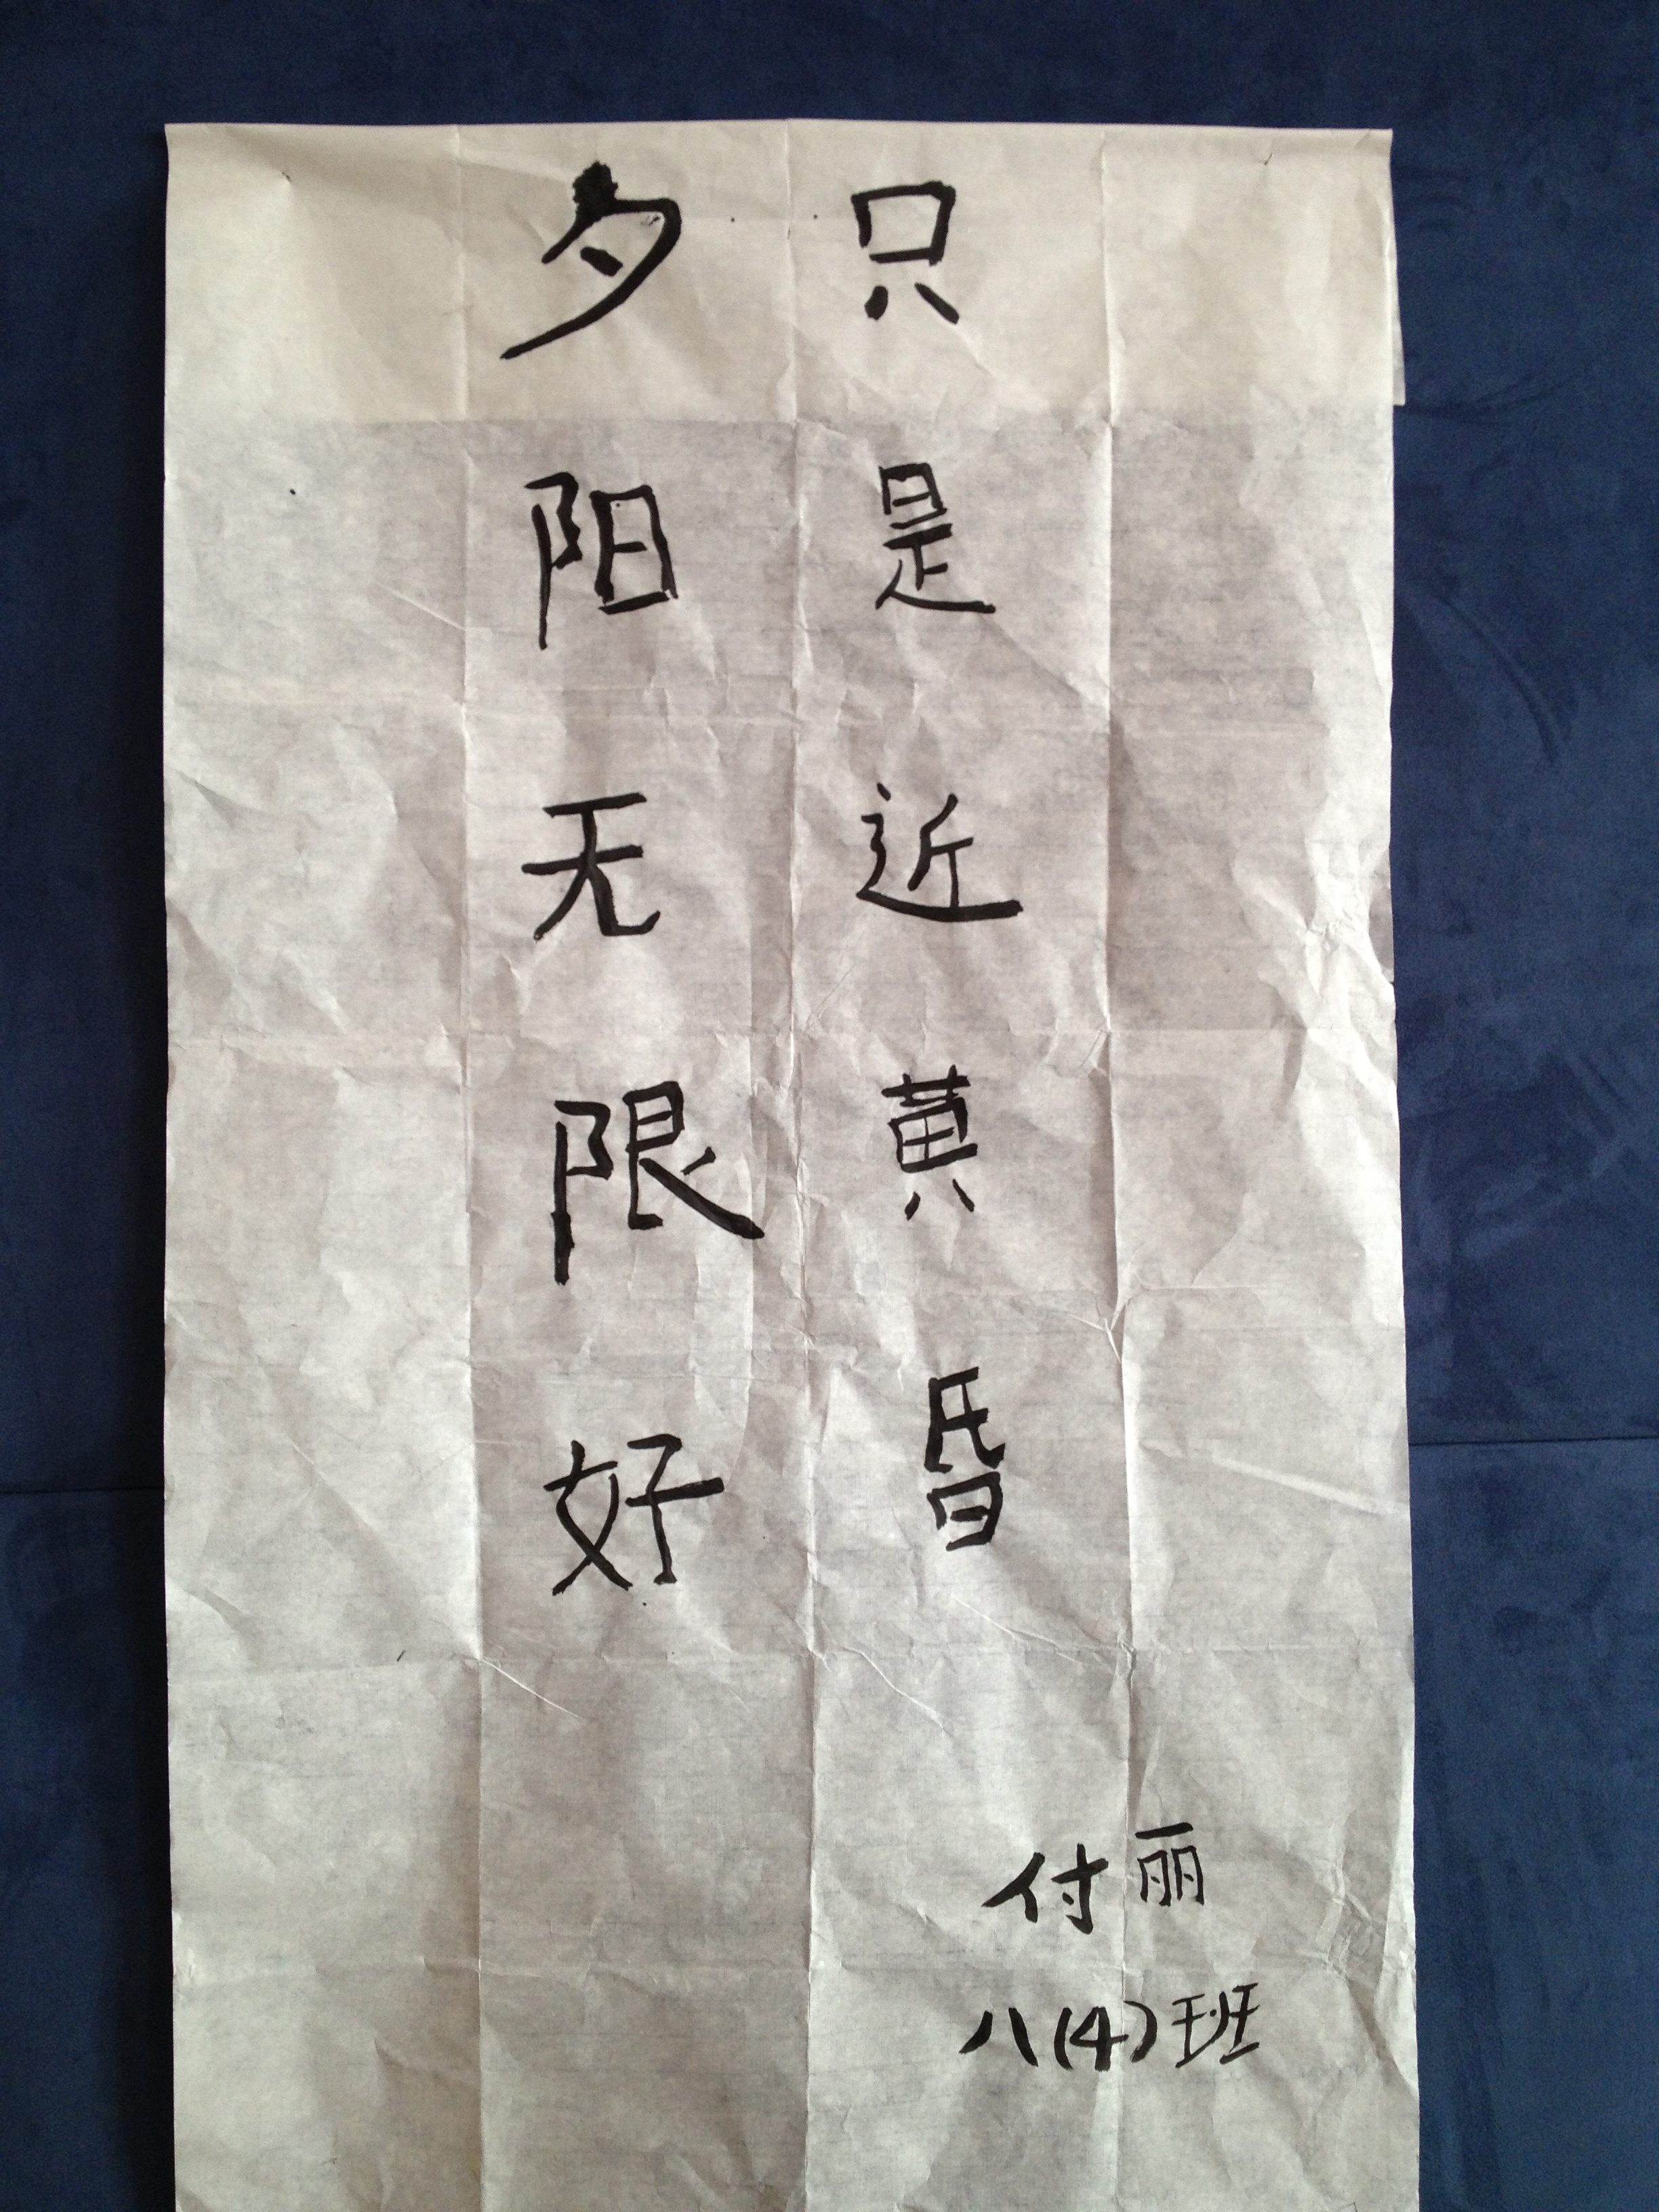 夕阳无限好
只是近黄昏
付丽
八(4)班